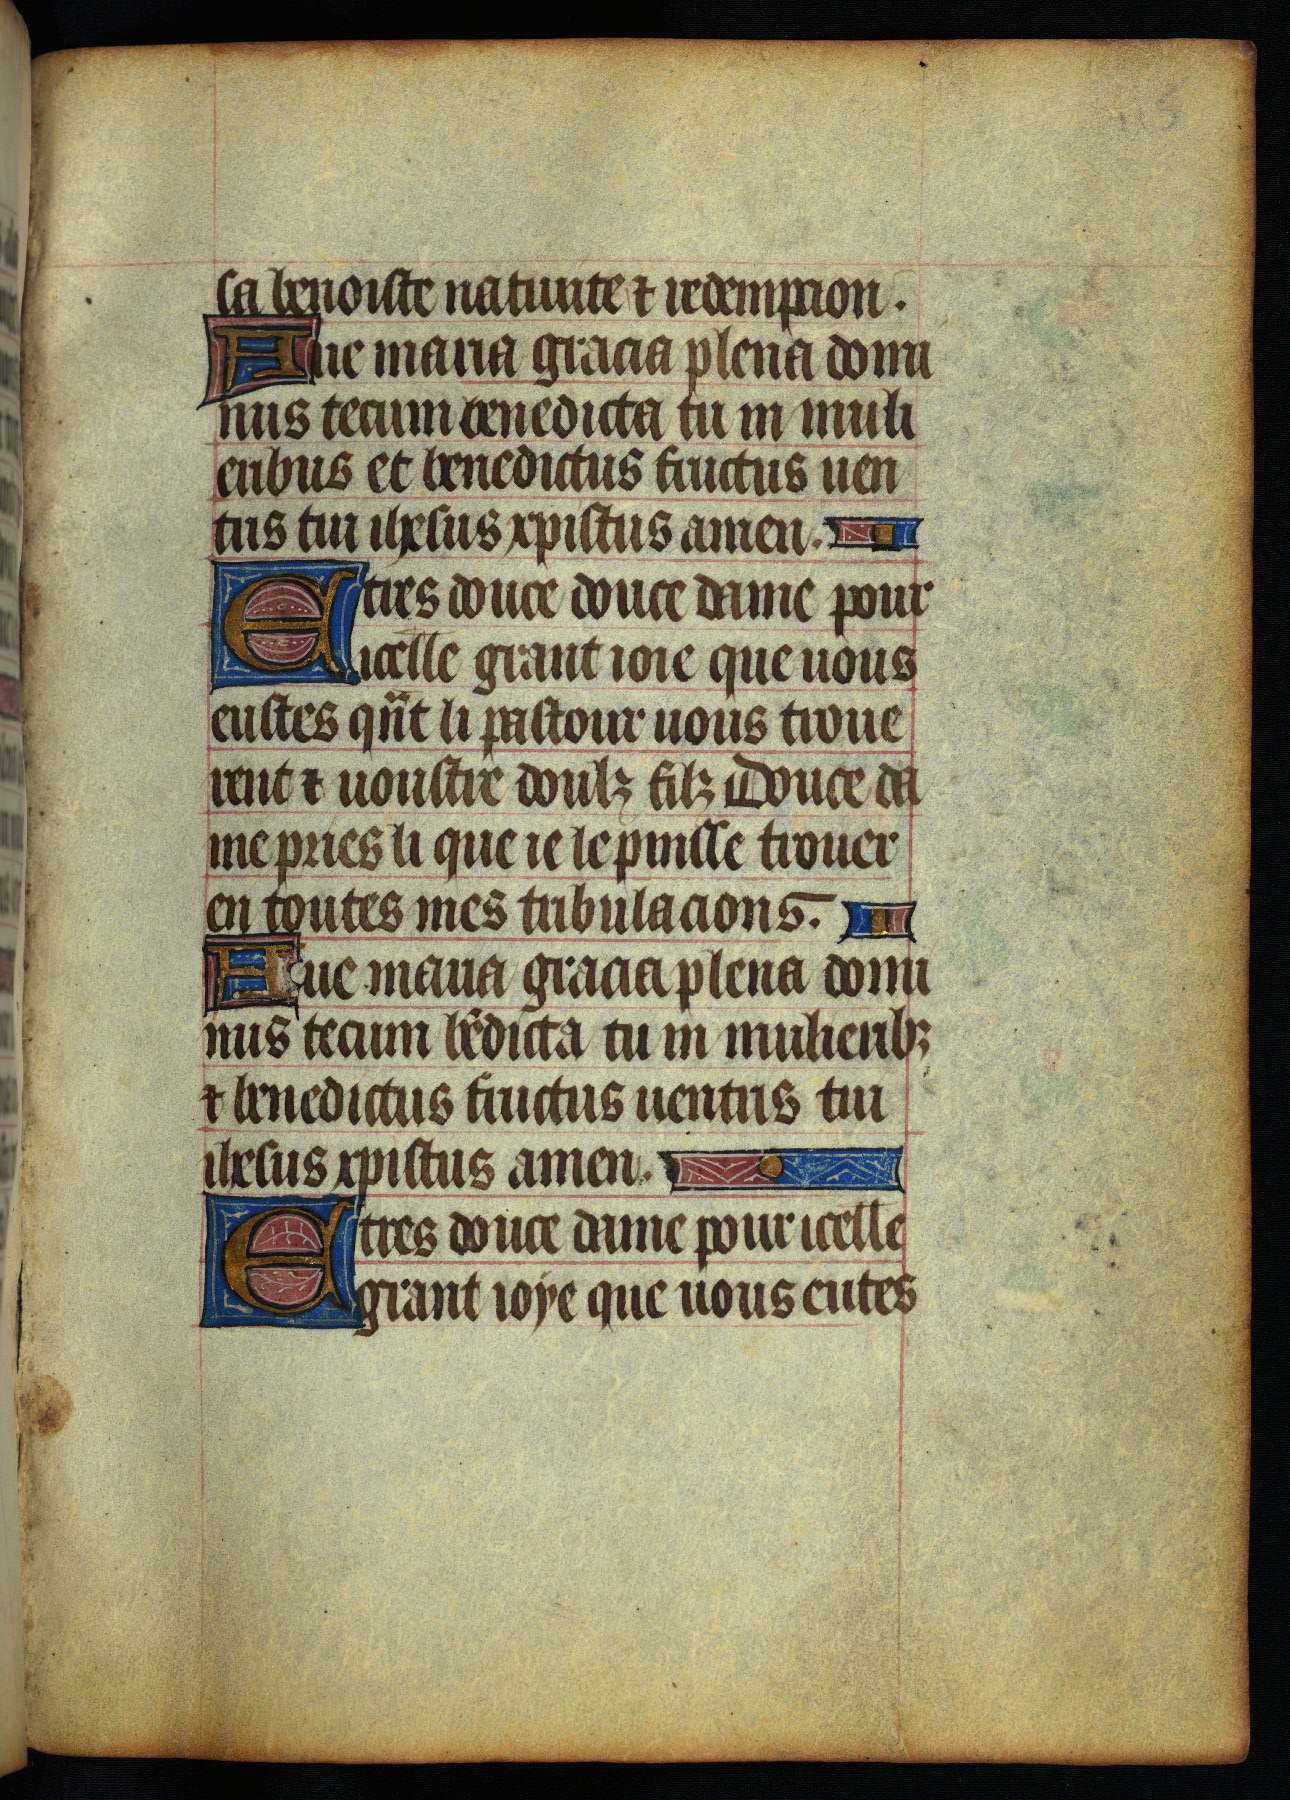 sa benoiste natiuite ⁊ redempcion.
Aue maria gracia plena domi
nus tecum benedicta tu in muli
eribus et benedictus fructus uen
tris tui ihesus xpistus amen.
E tres douce douce dame pour
icelle grant ioie que uous
eustes qn̄t li pastour uous trouue
rent ⁊ uoustre doulz filz Douce da
me pries li que ie le puisse trouer
en toutes mes tribulacions.
Aue maria gracia plena domi
nus tecum bēdicta tu in mulieribꝫ
⁊ benedictus fructus uentris tui
ihesus xpistus amen.
E tres douce dame pour icelle
grant ioye que uous eutes